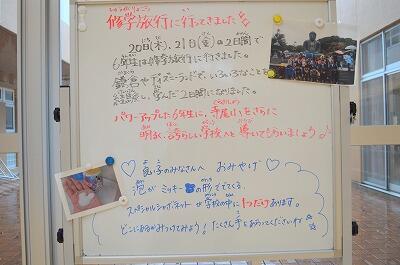 修学旅行に行ってきました
20日(木)、21日(金)の2日間で
6年生は修学旅行に行きました。
鎌倉やディズニーランドで、いろいろなことを
し、学んだ2日間になりました。
パワーアップした6年生に、寺尾小をさらに
明るく、誇らしい学校へと導いてもらいましょう♪
♡良い子のみなさんへ おみやげ♡
泡がミッキーの形ででてくる
スペシャルシャボネットが学校の中に1つだけあります。
どこにあるかみつけてみよう!たくさん手をあらってくださいね